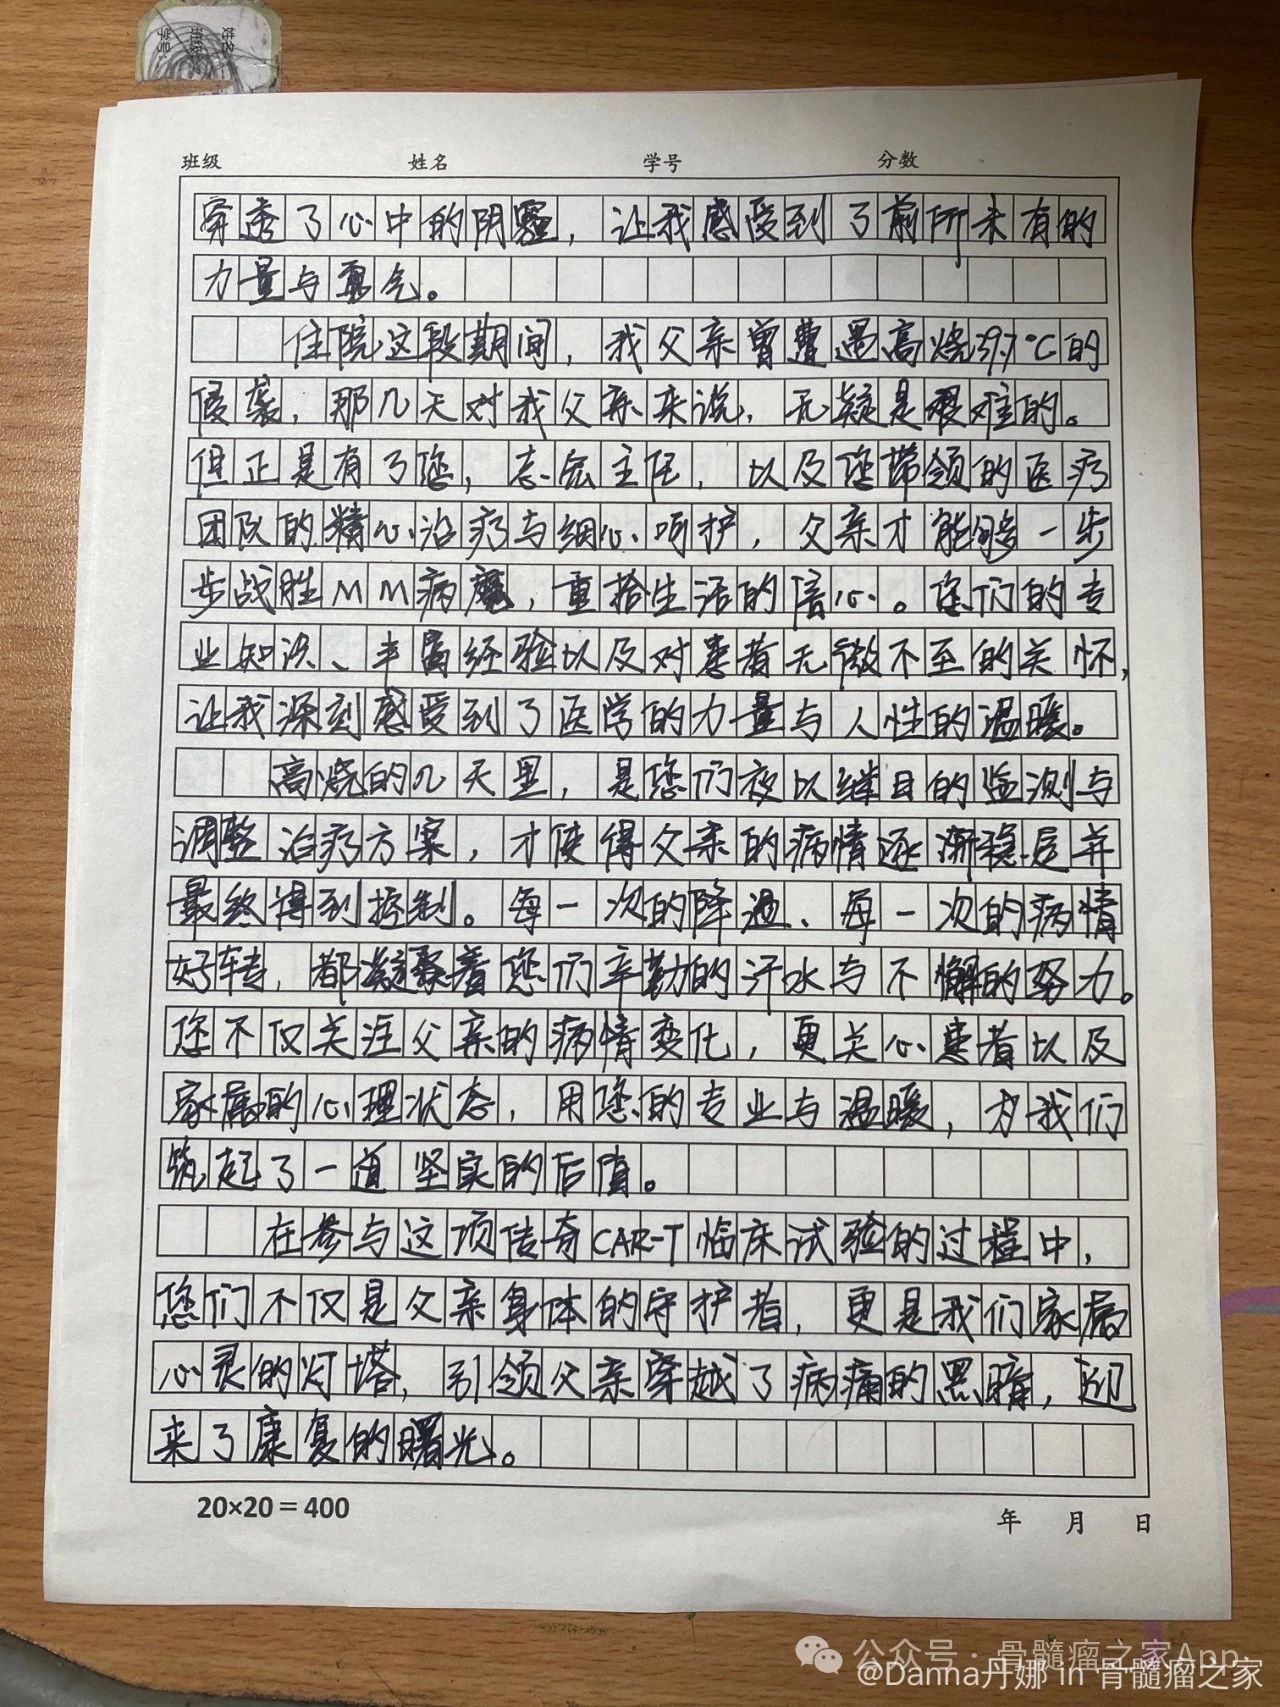 姓名
班级
学号
班级 姓名 学号 分数
穿透了心中的阴霾，让我感受到了前所未有的
力量与勇气。
住院这段期间，我父亲曾遭遇高烧39.7°C的
侵袭，那几天对我父亲来说，无疑是艰难的。
但正是有了您，志宏主任，以及您带领的医疗
团队的精心治疗与细心呵护，父亲才能够一步
步战胜MM病魔，重拾生活的信心。您们的专
业知识、丰富经验以及对患者无微不至的关怀，
让我深刻感受到了医学的力量与人性的温暖。
高烧的几天里，是您们夜以继日的监测与
调整治疗方案，才使得父亲的病情逐渐稳定并
最终得到控制。每一次的降温、每一次的病情
好转，都凝聚着您们辛勤的汗水与不懈的努力。
您不仅关注父亲的病情变化，更关心患者以及
家属的心理状态，用您的专业与温暖，为我们
筑起了一道坚实的后盾。
在参与这项传奇CAR-T临床试验的过程中，
您们不仅是父亲身体的守护者，更是我们家属
心灵的灯塔，引领父亲穿越了病痛的黑暗，迎
来了康复的曙光。
20×20＝400 年 月 日
公众号·骨髓瘤之家App
@Danna丹娜 in 骨髓瘤之家